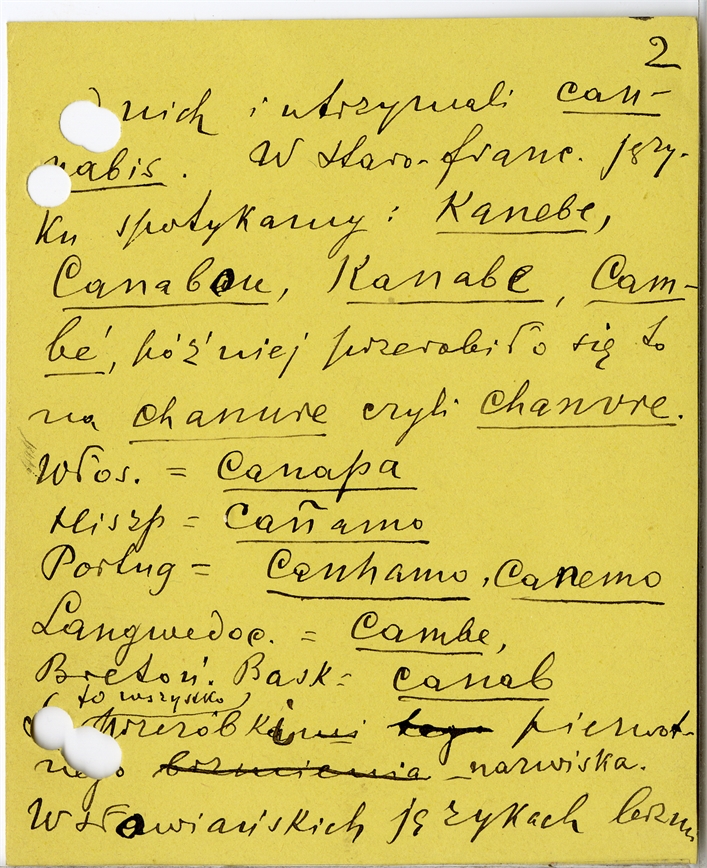 2
nich i utrzymali can-
nabis. W staro-franc. języ-
ku spotykamy: Kanebe,
Canabou, Kanabe, Cam-
bé, później przerobiło się to
na chanure czyli chanvre.
Włos. = Canapa
Hiszp = Cañamo
Portug = Canhamo, Canemo
Langwedoc. = Cambe,
Bretoń. Bask = canab
to wszystko
przeróbki tego pierwot-
nego brzmienia nazwiska.
W słowiańskich językach brzm